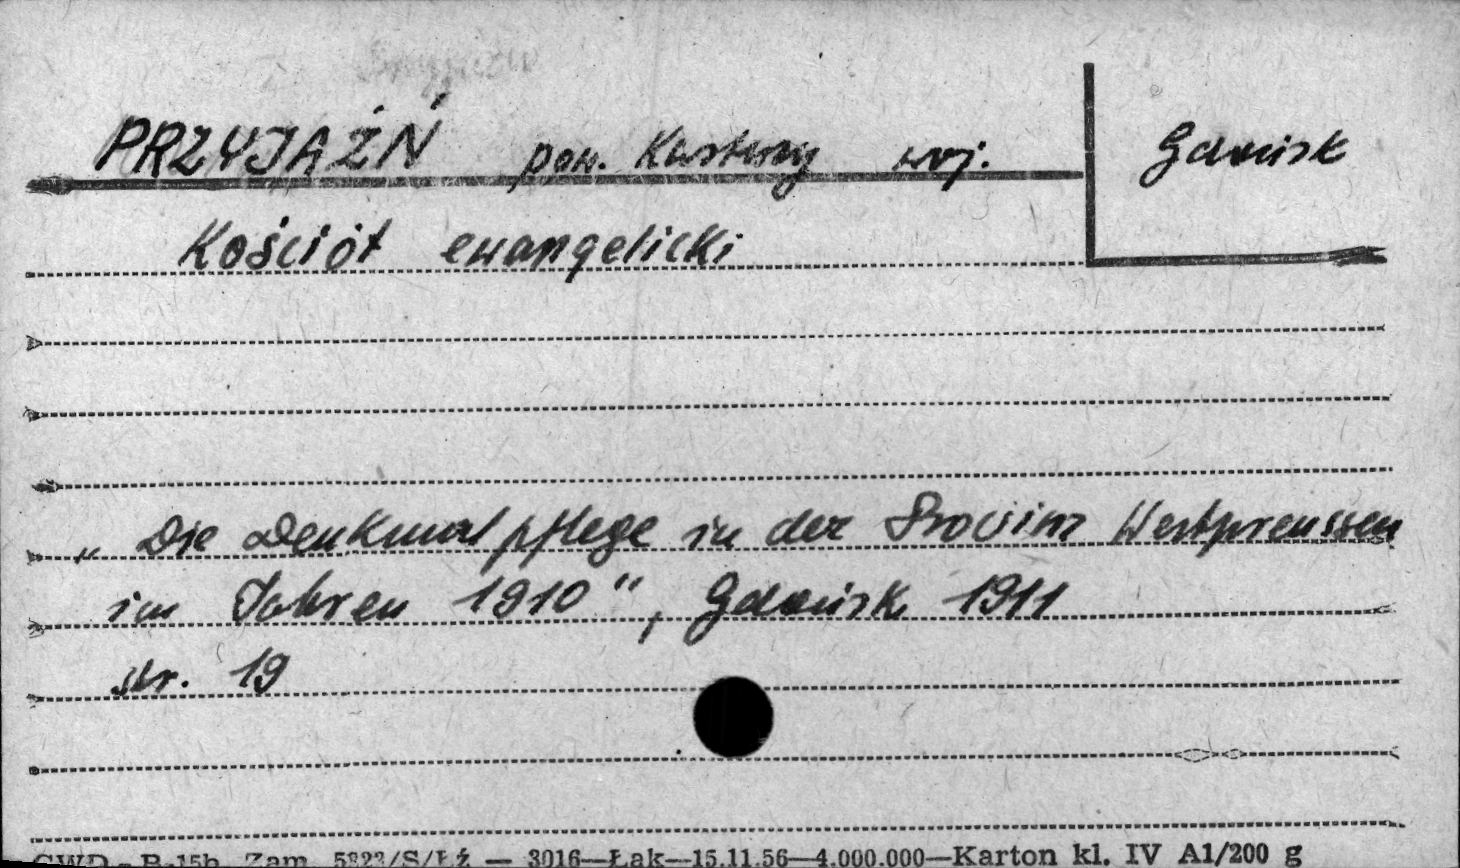 PRZYJAŹŃ pow. Kartuzy woj. Gdańsk
Kościół ewangelicki
„Die Denkmalpflege in der Provinz Westpreussen
im Jahren 1910", Gdańsk 1911
str. 19
GWD - B-15b Zam. 5823/S/Łź — 3016—Łąk—15.11.56—4.000.000—Karton kl. IV A1/200 g